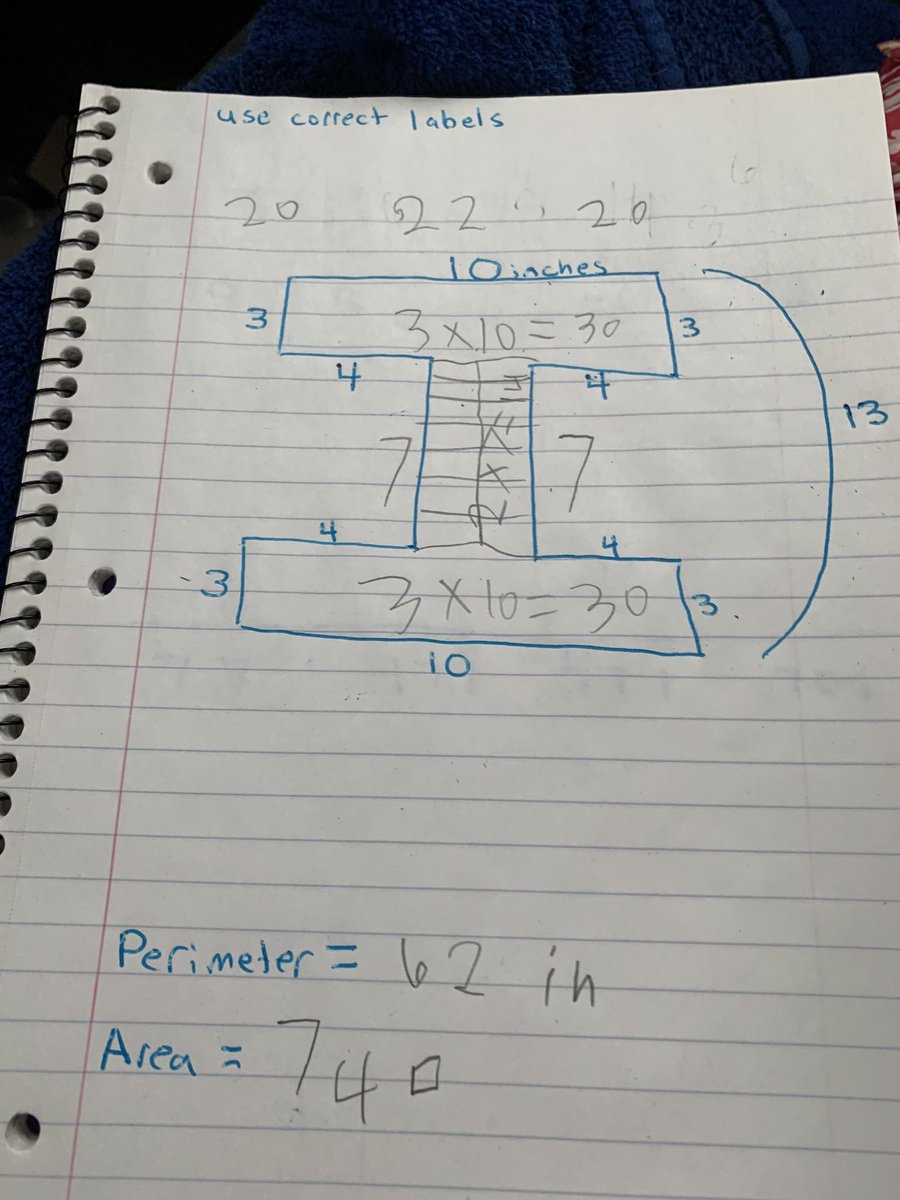 use correct labels
20 22 20
10 inches
3 3 x 10 = 30 3
4 4
13
7 7
4 4
3 3 x 10 = 30 3
10
Perimeter = 62 in
Area = 74 □